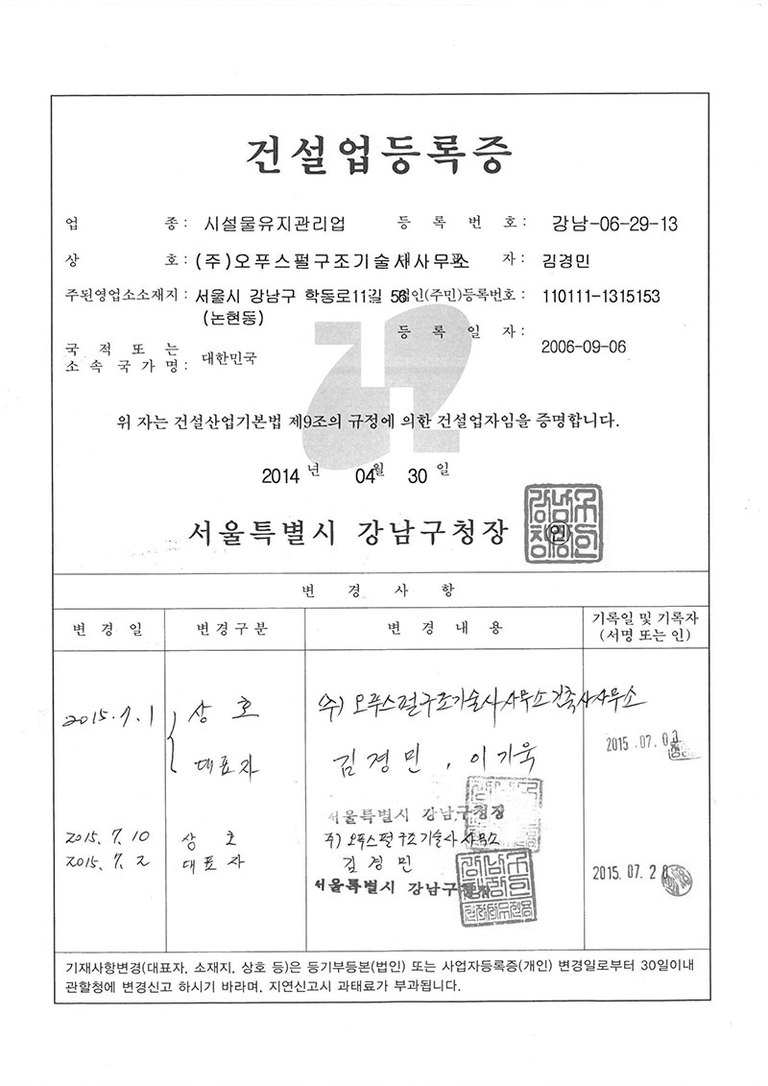 건설업등록증
업 종 : 시설물유지관리업 등 록 번 호 : 강남-06-29-13
상 호 : (주)오푸스펄구조기술사사무소 자 : 김경민
주된영업소소재지 : 서울시 강남구 학동로11길 56 법인(주민)등록번호 : 110111-1315153
(논현동)
등 록 일 자 :
국 적 또 는
소 속 국 가 명 : 대한민국 2006-09-06
위 자는 건설산업기본법 제9조의 규정에 의한 건설업자임을 증명합니다.
2014 년 04월 30 일
서울특별시 강남구청장 인
변 경 사 항
변 경 일 변경구분 변 경 내 용 기록일 및 기록자
(서명 또는 인)
2015. 7. 1 상 호 (주) 오푸스펄구조기술사사무소건축사사무소
대표자 김경민, 이기욱 2015. 07. 0
서울특별시 강남구청장
2015. 7. 10 상 호 주) 오푸스펄구조기술사사무소
2015. 7. 2 대표자 김경민
서울특별시 강남구청장 2015. 07. 2
기재사항변경(대표자, 소재지, 상호 등)은 등기부등본(법인) 또는 사업자등록증(개인) 변경일로부터 30일이내
관할청에 변경신고 하시기 바라며, 지연신고시 과태료가 부과됩니다.